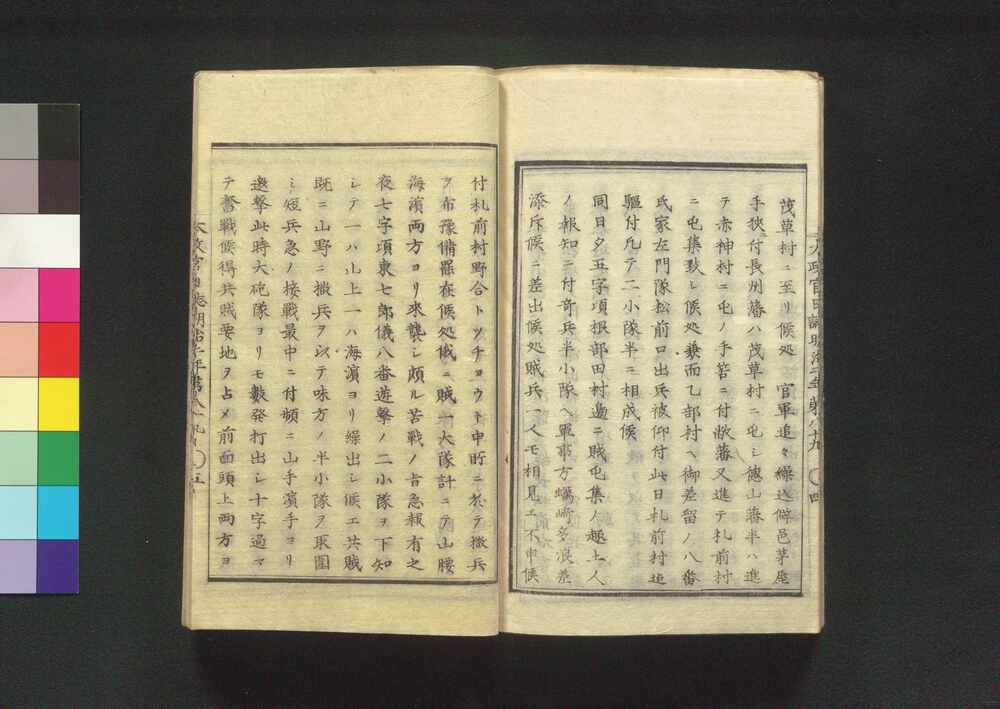 太政官日誌明治二年第八十九 ○四
茂草村ニ至リ候処 官軍追々繰込僻邑茅屋
手狭付長州藩ハ茂草村ニ屯シ徳山藩半ハ進
テ赤神村ニ屯ノ手筈ニ付敝藩又進テ札前村
ニ屯集致シ候処兼而乙部村ヘ御差留ノ八番
氏家左門隊松前口出兵被仰付此日札前村迄
駆付凡テ二小隊半ニ相成候
同日夕五字頃根部田村過ニ賊屯集ノ趣土人
ノ報知ニ付奇兵半小隊ヘ軍事方蠣崎多浪差
添斥候ニ差出候処賊兵一人モ相見エ不申候
付札前村野合トツチヨウト申所ニ於テ撒兵
ヲ布豫備罷在候処俄ニ賊一大隊計ニテ山腰
海濱両方ヨリ来襲シ頗ル苦戦ノ旨急報有之
夜七字頃東七郎儀八番遊撃ノ二小隊ヲ下知
シテ一ハ山上一ハ海濱ヨリ繰出シ候エ共賊
既ニ山野ニ撒兵ヲ以テ味方ノ半小隊ヲ取圍
ミ短兵急ノ接戦最中ニ付頻ニ山手濱手ヨリ
邀撃此時大砲隊ヨリモ數發打出シ十字過マ
テ奮戦候得共賊要地ヲ占メ前面頭上両方ヨ
太政官日誌明治二年第八十九 ○五